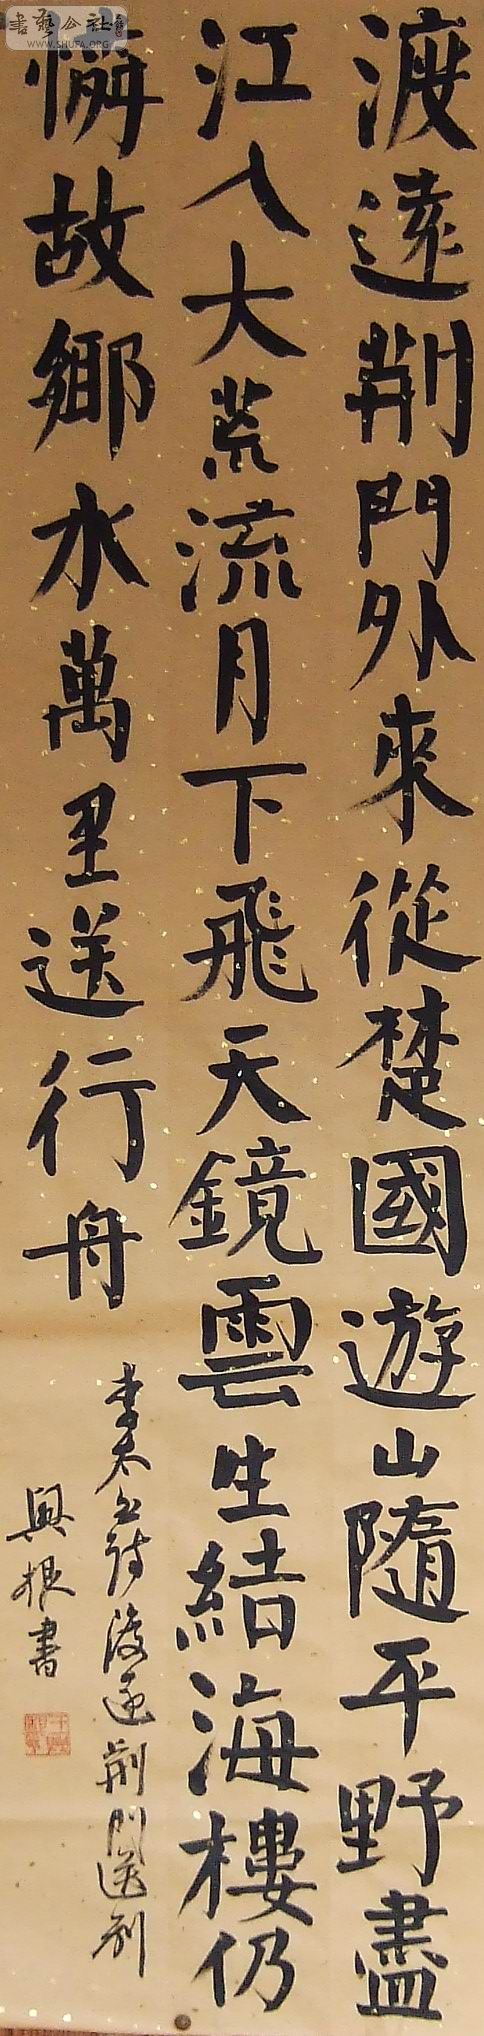 渡遠荊門外來從楚國遊山隨平野盡
江入大荒流月下飛天鏡雲生結海樓仍
憐故鄉水萬里送行舟
李太白詩渡遠荊門送別
興根書
書藝公社
WWW.SHUFA.ORG